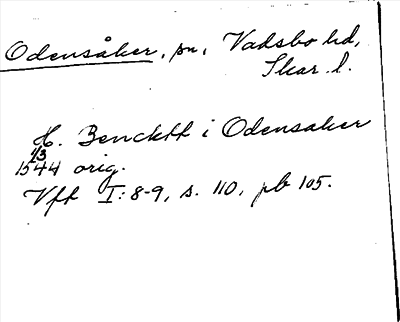 Odensåker, sn, Vadsbo hd,
Skar. l.
H. Bencktt i Odensaker
1/3
1544 orig.
Vft I: 8-9, s. 110, pb 105.